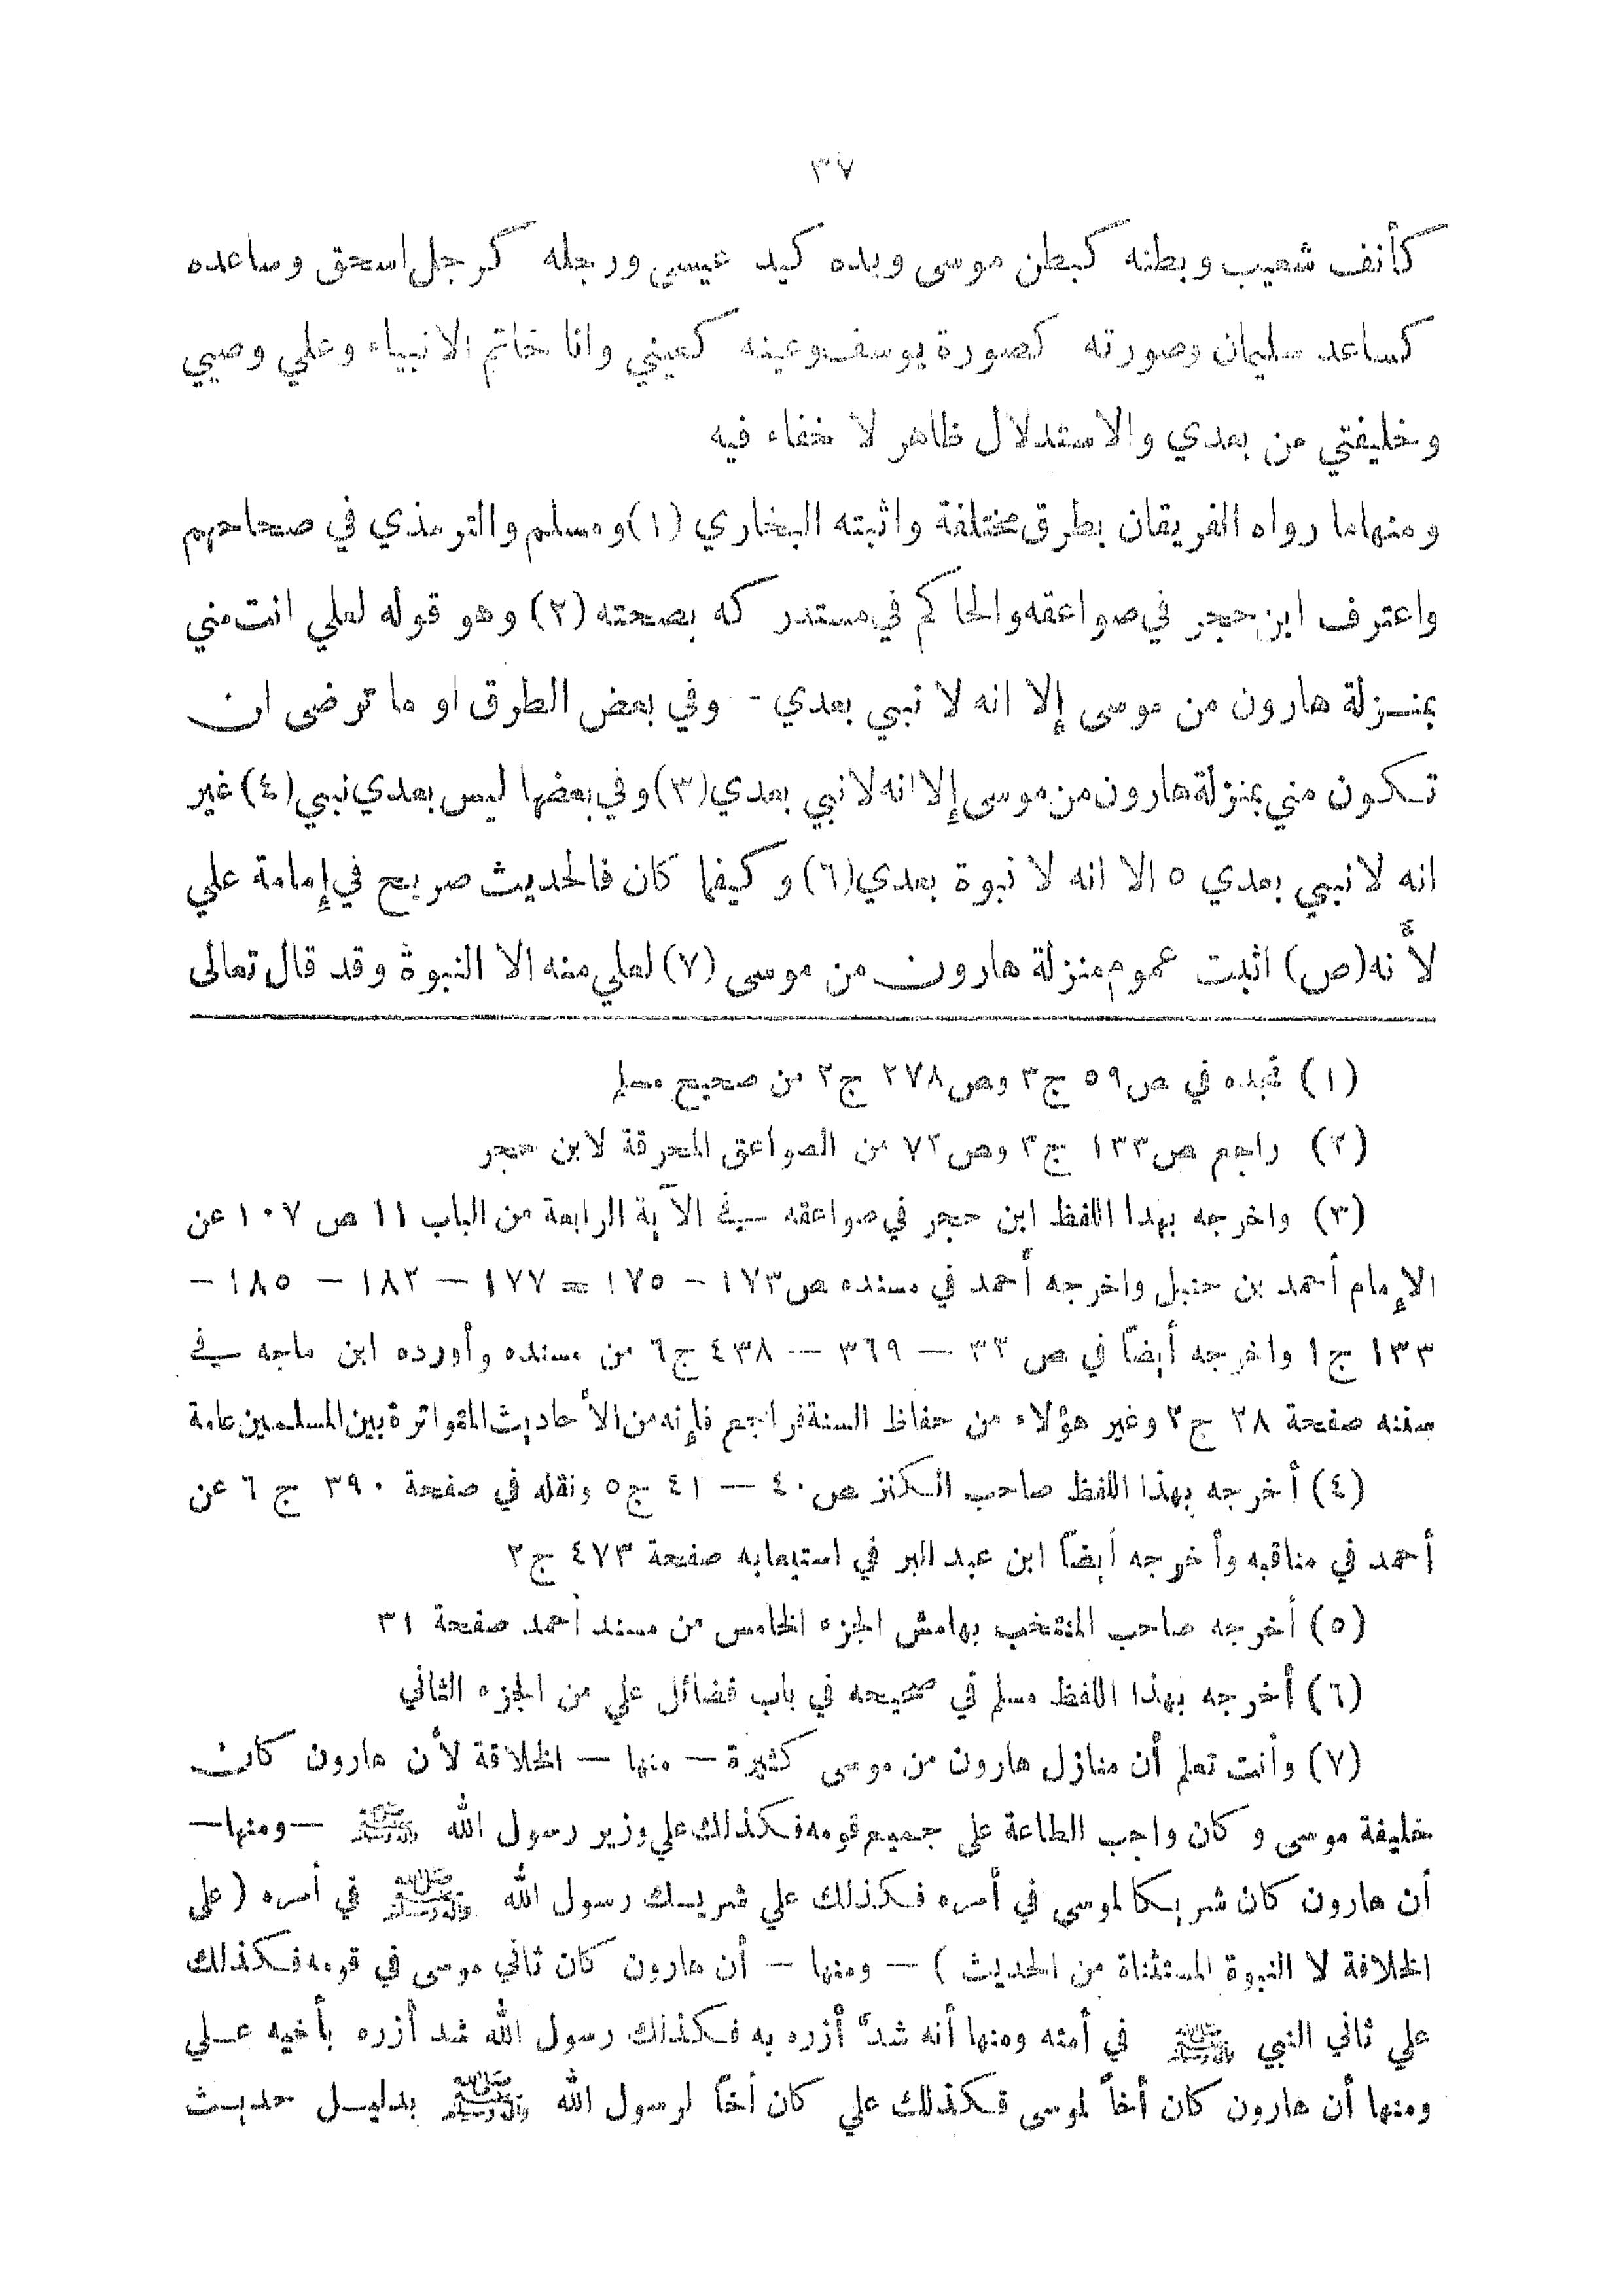 ٣٧
كأنف شعيب وبطنه كبطن موسى ويده كيد عيسى ورجله كرجل اسحق وساعده
كساعد سليمان وصورته كصورة يوسف وعينه كعيني وانا خاتم الانبياء وعلي وصيي
وخليفتي من بعدي والاستدلال ظاهر لا خفاء فيه
ومنها ما رواه الفريقان بطرق مختلفة واثبته البخاري (١) ومسلم والترمذي في صحاحهم
واعترف ابن حجر في صواعقه والحاكم في مستدركه بصحته (٢) وهو قوله لعلي انت مني
بمنزلة هارون من موسى إلا انه لا نبي بعدي - وفي بعض الطرق او ما ترضى ان
تكون مني بمنزلة هارون من موسى إلا انه لا نبي بعدي (٣) وفي بعضها ليس بعدي نبي (٤) غير
انه لا نبي بعدي ٥ الا انه لا نبوة بعدي (٦) وكيفما كان فالحديث صريح في إمامة علي
لأنه (ص) اثبت عموم منزلة هارون من موسى (٧) لعلي منه الا النبوة وقد قال تعالى
(١) تجده في ص ٥٩ ج ٣ وص ٢٧٨ ج ٢ من صحيح مسلم
(٢) راجع ص ١٣٣ ج ٣ وص ٧٢ من الصواعق المحرقة لابن حجر
(٣) واخرجه بهذا اللفظ ابن حجر في صواعقه في الآية الرابعة من الباب ١١ ص ١٠٧ عن
الإمام أحمد بن حنبل واخرجه أحمد في مسنده ص ١٧٣ - ١٧٥ = ١٧٧ - ١٨٢ - ١٨٥ -
١٣٣ ج ١ واخرجه أيضاً في ص ٣٢ - ٣٦٩ - ٤٣٨ ج ٦ من مسنده وأورده ابن ماجه في
سننه صفحة ٢٨ ج ٢ وغير هؤلاء من حفاظ السنة فراجع فإنه من الأحاديث المتواترة بين المسلمين عامة
(٤) أخرجه بهذا اللفظ صاحب الكنز ص ٤٠ - ٤١ ج ٥ ونقله في صفحة ٣٩٠ ج ٦ عن
أحمد في مناقبه وأخرجه أيضاً ابن عبد البر في استيعابه صفحة ٤٧٣ ج ٢
(٥) أخرجه صاحب المنتخب بهامش الجزء الخامس من مسند أحمد صفحة ٣١
(٦) أخرجه بهذا اللفظ مسلم في صحيحه في باب فضائل علي من الجزء الثاني
(٧) وأنت تعلم أن منازل هارون من موسى كثيرة - منها - الخلافة لأن هارون كان
خليفة موسى وكان واجب الطاعة على جميع قومه فكذلك علي وزير رسول الله ﷺ - ومنها -
أن هارون كان شريكا لموسى في أمره فكذلك علي شريك رسول الله ﷺ في أمره (على
الخلافة لا النبوة المستثناة من الحديث) - ومنها - أن هارون كان ثاني موسى في قومه فكذلك
علي ثاني النبي ﷺ في أمته ومنها أنه شدّ أزره به فكذلك رسول الله شد أزره بأخيه علي
ومنها أن هارون كان أخاً لموسى فكذلك علي كان أخاً لرسول الله ﷺ بدليل حديث